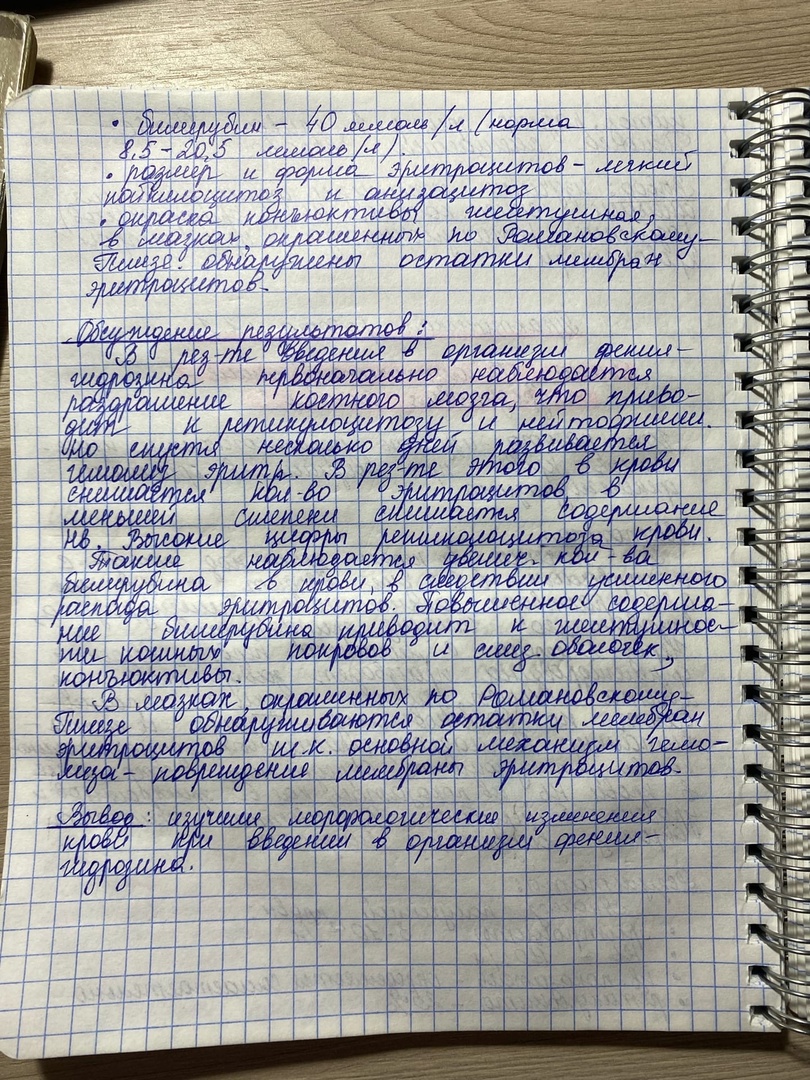 • билирубин – 40 ммоль/л (норма
8,5 – 20,5 ммоль/л)
• размер и форма эритроцитов – легкий
пойкилоцитоз и анизацитоз
• окраска конъюктивы желтушная,
в мазках, окрашенных по Романовскому–
Гимзе обнаружены остатки мембран
эритроцитов.
Обсуждение результатов:
В рез-те введения в организм фенил-
гидрозина первоначально наблюдается
раздражение костного мозга, что приво-
дит к ретикулоцитозу и нейтрофилии.
но спустя несколько дней развивается
гемолиз эритр. В рез-те этого в крови
снижается кол-во эритроцитов, в
меньшей степени снижается содержание
Нв. Высокие цифры ретикулоцитоза крови.
Также наблюдается увелич. кол-ва
билирубина в крови, в следствии усиленного
распада эритроцитов. Повышенное содержа-
ние билирубина приводит к желтушнос-
ти кожных покровов и слиз. оболочек,
конъюктивы.
В мазках, окрашенных по Романовскому–
Гимзе обнаруживаются остатки мембран
эритроцитов т.к. основной механизм гемо-
лиза – повреждение мембраны эритроцитов.
Вывод: изучили морфологические изменения
крови при введении в организм фенил-
гидрозина.